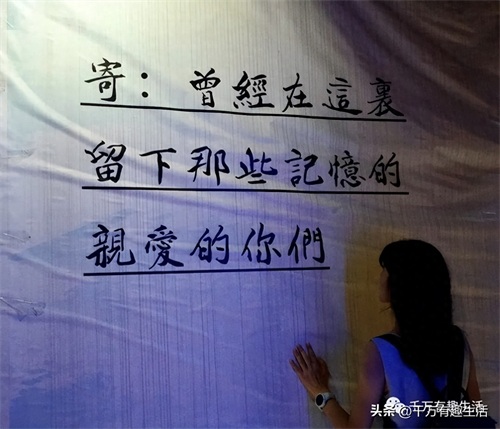 寄：曾經在這裏
留下那些記憶的
親愛的你們
千万有趣生活
头条@千万有趣生活